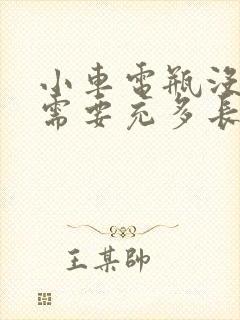 小車電瓶沒
需要充多長
王某帥